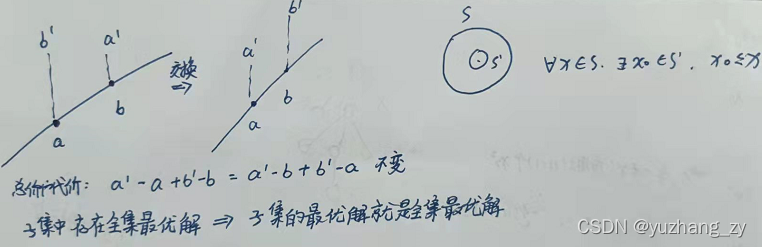 b' a' a b
交换
⇒
a' b' a b
S S'
∀x∈S. ∃x₀∈S'. x₀≤x
总代价: a'-a+b'-b = a'-b+b'-a 不变
子集中存在全集最优解 ⇒ 子集的最优解就是全集最优解
CSDN @yuzhang_zy